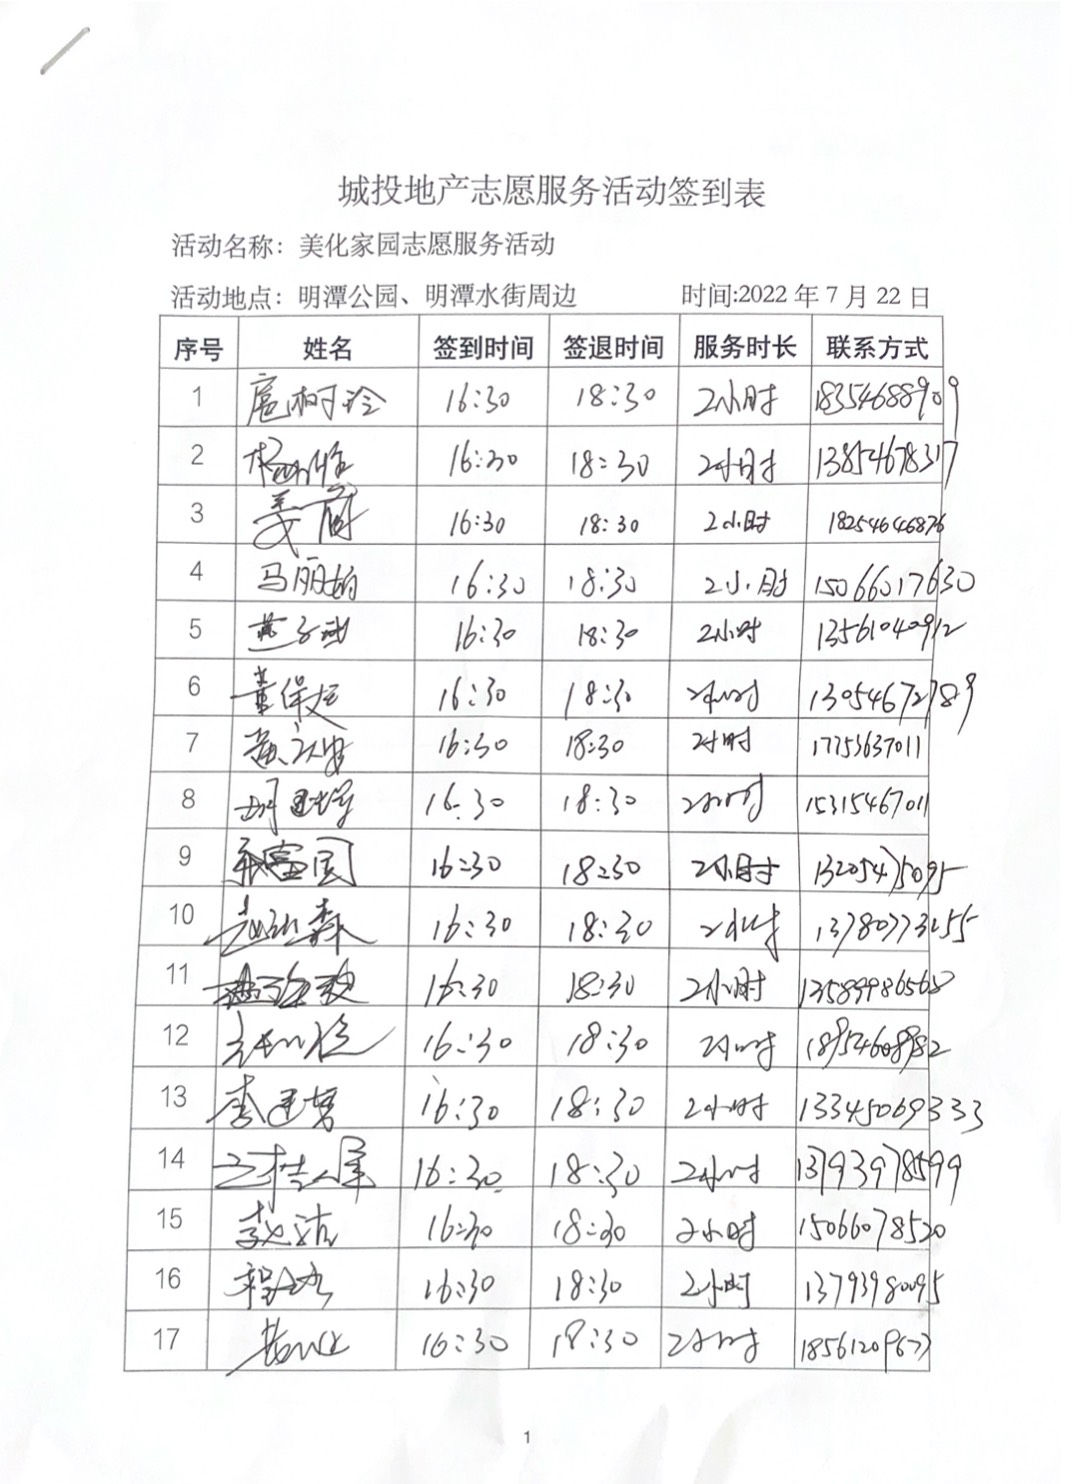 城投地产志愿服务活动签到表
活动名称：美化家园志愿服务活动
活动地点：明潭公园、明潭水街周边 时间:2022 年 7 月 22 日
序号 姓名 签到时间 签退时间 服务时长 联系方式
1 扈柯玲 16:30 18:30 2小时 18354688909
2 16:30 18:30 2小时 13854678317
3 姜蔚 16:30 18:30 2小时 18254646876
4 马丽娟 16:30 18:30 2小时 15066017630
5 16:30 18:30 2小时 13561040912
6 董保友 16:30 18:30 2小时 13054672789
7 16:30 18:30 2小时 17753637011
8 16:30 18:30 2小时 15315467011
9 富国 16:30 18:30 2小时 13205475095
10 森 16:30 18:30 2小时
11 16:30 18:30 2小时 13589986568
12 16:30 18:30 2小时 18954608982
13 李建 16:30 18:30 2小时 13345069333
14 16:30 18:30 2小时 13793978599
15 赵洁 16:30 18:30 2小时 15066078520
16 16:30 18:30 2小时 13793980095
17 16:30 18:30 2小时
1